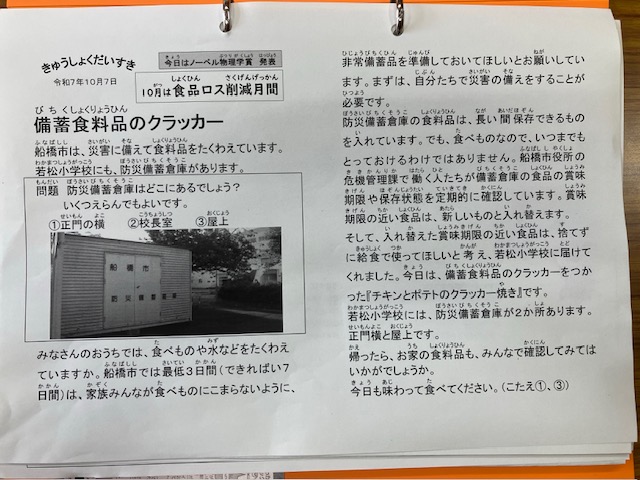 きゅうしょくだいすき
令和7年10月7日
今日はノーベル物理学賞 発表
10月は食品ロス削減月間
備蓄食料品のクラッカー
船橋市は、災害に備えて食料品をたくわえています。
若松小学校にも、防災備蓄倉庫があります。
問題 防災備蓄倉庫はどこにあるでしょう?
いくつえらんでもよいです。
①正門の横 ②校長室 ③屋上
船橋市
防災備蓄倉庫
みなさんのおうちでは、食べものや水などをたくわえ
ていますか。船橋市では最低3日間(できれば1週
日間)は、家族みんなが食べものにこまらないように、
非常備蓄品を準備しておいてほしいとお願いしてい
ます。まずは、自分たちで災害の備えをすることが
必要です。
防災備蓄倉庫の食料品は、長い間保存できるもの
を入れています。でも、食べものなので、いつまでも
とっておけるわけではありません。船橋市役所の
危機管理課で働く人たちが備蓄倉庫の食品の賞味
期限や保存状態を定期的に確認しています。賞味
期限の近い食品は、新しいものと入れ替えます。
そして、入れ替えた賞味期限の近い食品は、捨てず
に給食で使ってほしいと考え、若松小学校に届けて
くれました。今日は、備蓄食料品のクラッカーをつか
った『チキンとポテトのクラッカー焼き』です。
若松小学校には、防災備蓄倉庫が2か所あります。
正門横と屋上です。
帰ったら、お家の食料品も、みんなで確認してみては
いかがでしょうか。
今日も味わって食べてください。(こたえ①、③)